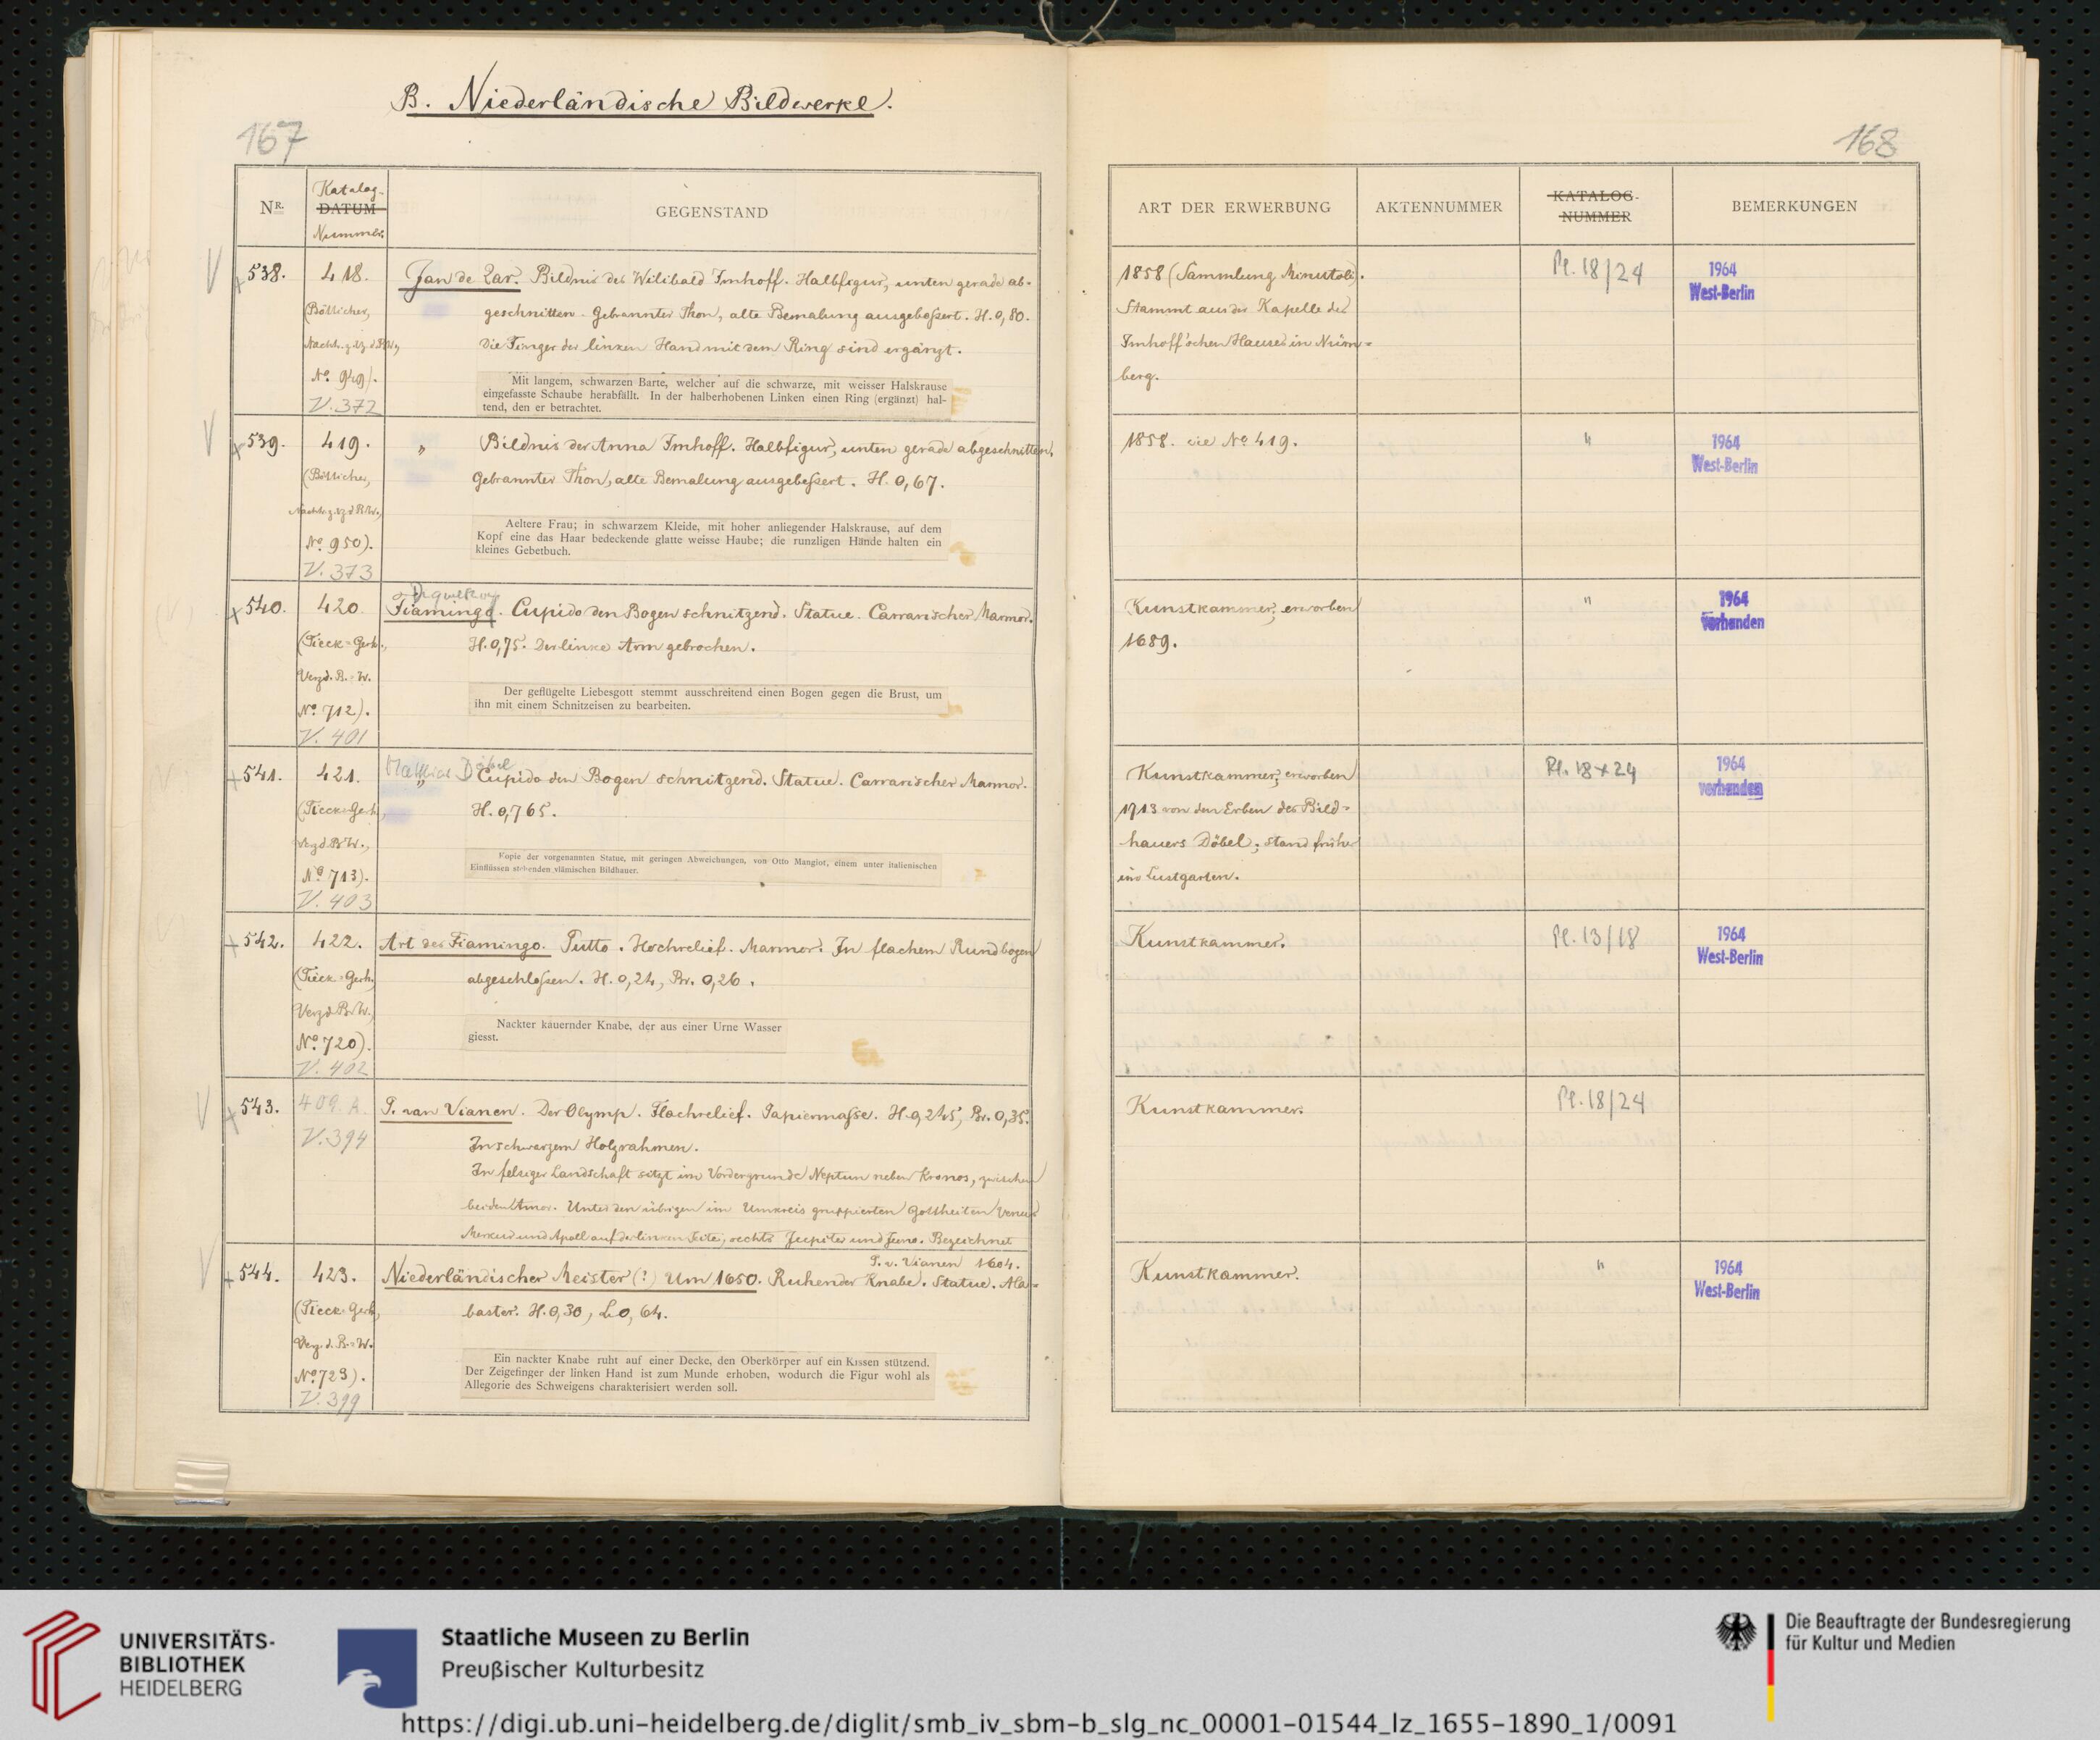 B. Niederländische Bildwerke.
167
NR.
Katalog-
DATUM
Nummer.
GEGENSTAND
538.
418.
(Bötticher,
Nachtr. z. Vz. d. B.W.,
No. 949).
V. 372
Jan de Zar. Bildnis des Wilibald Imhoff. Halbfigur, unten gerade ab-
geschnitten. Gebrannter Thon, alte Bemalung ausgebeßert. H. 0,80.
Die Finger der linken Hand mit dem Ring sind ergänzt.
Mit langem, schwarzen Barte, welcher auf die schwarze, mit weisser Halskrause
eingefasste Schaube herabfällt. In der halberhobenen Linken einen Ring (ergänzt) hal-
tend, den er betrachtet.
539.
419.
(Bötticher,
Nachtr. z. Vz. d. B.W.,
No. 950).
V. 373
" Bildnis der Anna Imhoff. Halbfigur, unten gerade abgeschnitten.
Gebrannter Thon, alte Bemalung ausgebeßert. H. 0,67.
Aeltere Frau; in schwarzem Kleide, mit hoher anliegender Halskrause, auf dem
Kopf eine das Haar bedeckende glatte weisse Haube; die runzligen Hände halten ein
kleines Gebetbuch.
540.
420.
(Tieck-Gerh.,
Verz. d. B.-W.
No. 712).
V. 401
Fiamingo. Cupido den Bogen schnitzend. Statue. Carrarischer Marmor.
H. 0,75. Der linke Arm gebrochen.
Der geflügelte Liebesgott stemmt ausschreitend einen Bogen gegen die Brust, um
ihn mit einem Schnitzeisen zu bearbeiten.
541.
421.
(Tieck-Gerh.,
Verz. d. B.W.,
No. 713).
V. 403
Matthias Döbel
" Cupido den Bogen schnitzend. Statue. Carrarischer Marmor.
H. 0,765.
Kopie der vorgenannten Statue, mit geringen Abweichungen, von Otto Mangiot, einem unter italienischen
Einflüssen stehenden vlämischen Bildhauer.
542.
422.
(Tieck-Gerh.,
Verz. d. B.W.,
No. 720).
V. 402
Art des Fiamingo. Putto. Hochrelief. Marmor. In flachem Rundbogen
abgeschloßen. H. 0,24, Br. 0,26.
Nackter kauernder Knabe, der aus einer Urne Wasser
giesst.
543.
409. A.
V. 394
P. van Vianen. Der Olymp. Flachrelief. Papiermaße. H. 0,245, Br. 0,35.
In schwarzem Holzrahmen.
In felsiger Landschaft sitzt im Vordergrunde Neptun neben Kronos, zwischen
beiden Amor. Unter den übrigen im Umkreis gruppierten Gottheiten Venus
Merkur und Apoll auf der linken Seite, rechts Jupiter und Juno. Bezeichnet
P. v. Vianen 1604.
544.
423.
(Tieck-Gerh.,
Verz. d. B.-W.
No. 723).
V. 399
Niederländischer Meister (?) Um 1650. Ruhender Knabe. Statue. Ala-
baster. H. 0,30, L. 0,64.
Ein nackter Knabe ruht auf einer Decke, den Oberkörper auf ein Kissen stützend.
Der Zeigefinger der linken Hand ist zum Munde erhoben, wodurch die Figur wohl als
Allegorie des Schweigens charakterisiert werden soll.
168
ART DER ERWERBUNG
AKTENNUMMER
KATALOG-
NUMMER
BEMERKUNGEN
1858 (Sammlung Minutoli).
Stammt aus der Kapelle des
Imhoff'schen Hauses in Nürn-
berg.
Pl. 18/24
1964
West-Berlin
1858. wie No 419.
"
1964
West-Berlin
Kunstkammer, erworben
1689.
"
1964
vorhanden
Kunstkammer, erworben
1713 von den Erben des Bild-
hauers Döbel; stand früher
im Lustgarten.
Pl. 18x24
1964
vorhanden
Kunstkammer.
Pl. 13/18
1964
West-Berlin
Kunstkammer.
Pl. 18/24
Kunstkammer.
"
1964
West-Berlin
UNIVERSITÄTS-
BIBLIOTHEK
HEIDELBERG
Staatliche Museen zu Berlin
Preußischer Kulturbesitz
Die Beauftragte der Bundesregierung
für Kultur und Medien
https://digi.ub.uni-heidelberg.de/diglit/smb_iv_sbm-b_slg_nc_00001-01544_lz_1655-1890_1/0091